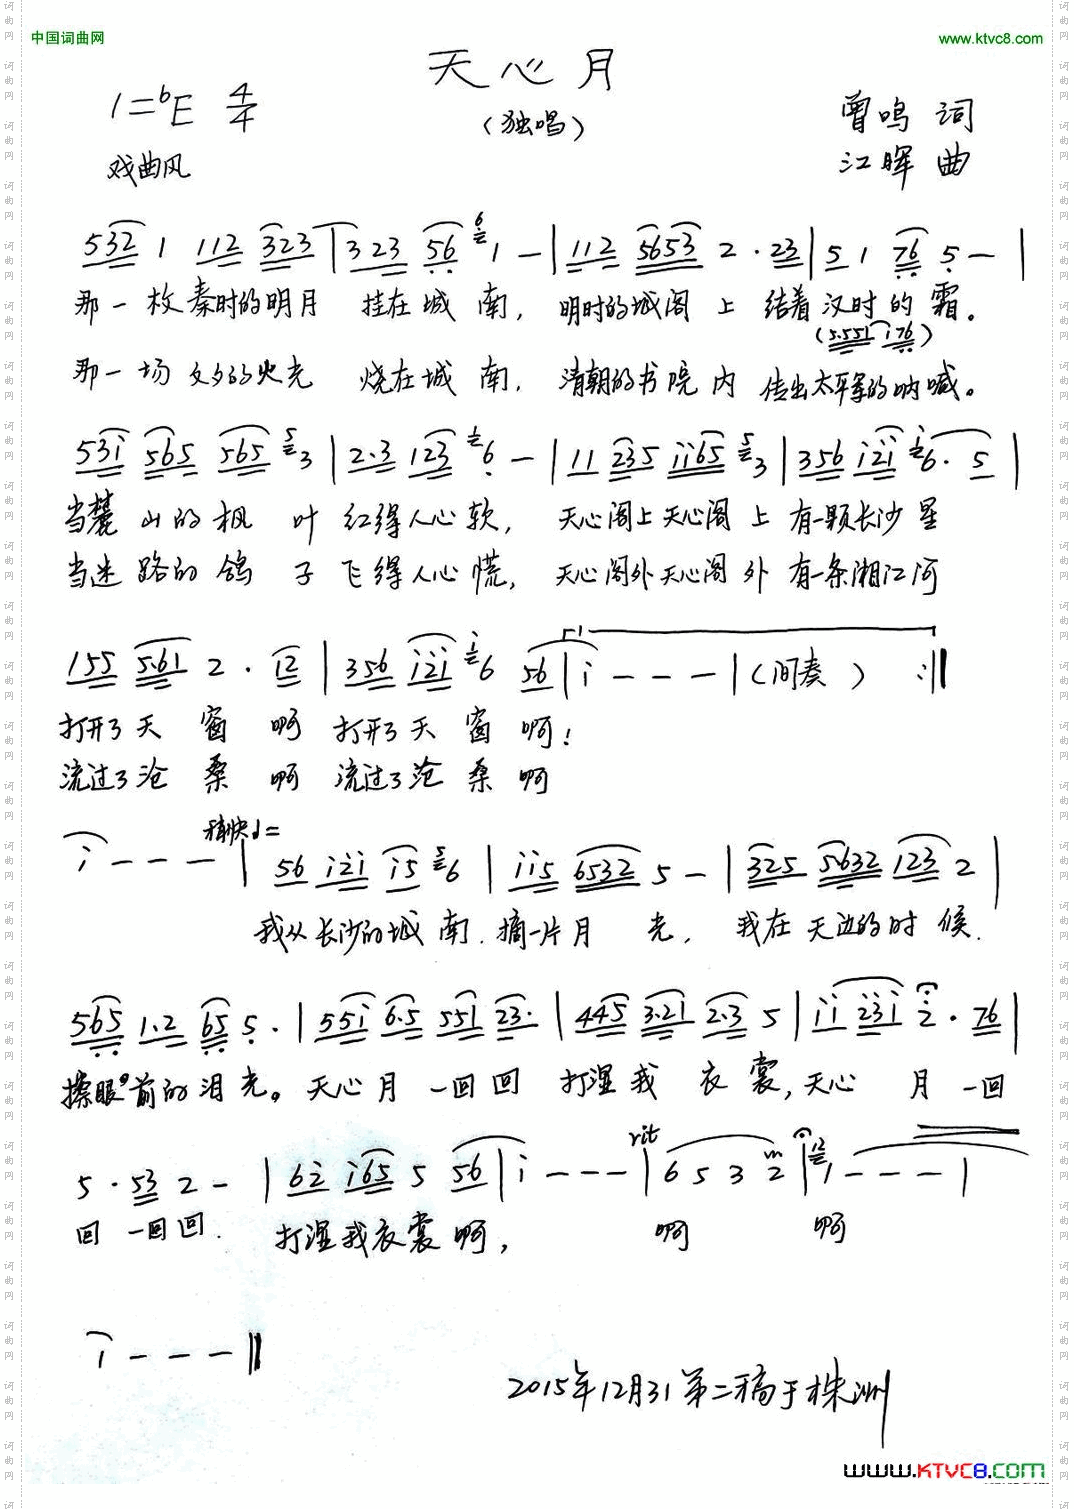 中国词曲网 www.ktvc8.com
天心月
(独唱)
1=♭E 4/4
戏曲风
曾鸣 词
江晖 曲
532 1 112 323 | 323 56 6 1 - | 112 5653 2 · 23 | 5 1 76 5 - |
那一枚秦时的明月 挂在城南, 明时的城阁上 结着汉时的霜。
(5.551 i76)
那一场文夕的火光 烧在城南, 清朝的书院内 传出太平军的呐喊。
53i 565 565 5 3 | 2·3 123 1 6 - | 11 235 ii65 5 3 | 356 i2i i 6· 5 |
当麓山的枫叶 红得人心软, 天心阁上天心阁上 有一颗长沙星
当迷路的鸽子 飞得人心慌, 天心阁外天心阁外 有一条湘江河
155 5·61 2 · 12 | 356 i2i i 6 56 | i - - - | (间奏) :||
打开了天窗啊 打开了天窗啊!
流过了沧桑啊 流过了沧桑啊
i - - - | 稍快 ♩= 56 i2i i5 5 6 | ii5 6532 5 - | 325 5·632 123 2 |
我从长沙的城南.摘一片月光, 我在天边的时候.
565 1·2 65 5 · | 55i 6·5 551 23· | 445 3·21 2·3 5 | ii 23i 2 · 76 |
擦眼前的泪光。天心月 一回回 打湿我衣裳,天心月 一回
5 · 53 2 - | 62 i65 5 56 | i - - - | rit 6 5 3 2 | 12 1 - - - |
回 一回回. 打湿我衣裳啊, 啊 啊
1 - - - ||
2015年12月31第二稿于株洲
www.KTVC8.com